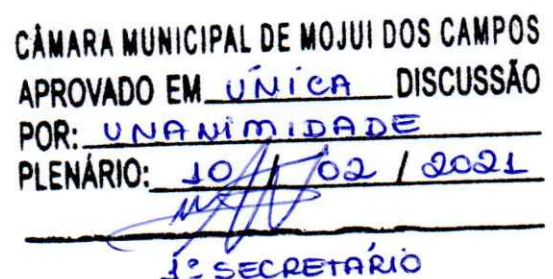 CÂMARA MUNICIPAL DE MOJUI DOS CAMPOS
APROVADO EM ÚNICA DISCUSSÃO
POR: UNANIMIDADE
PLENÁRIO: 10 / 02 / 2021
1º SECRETARIO